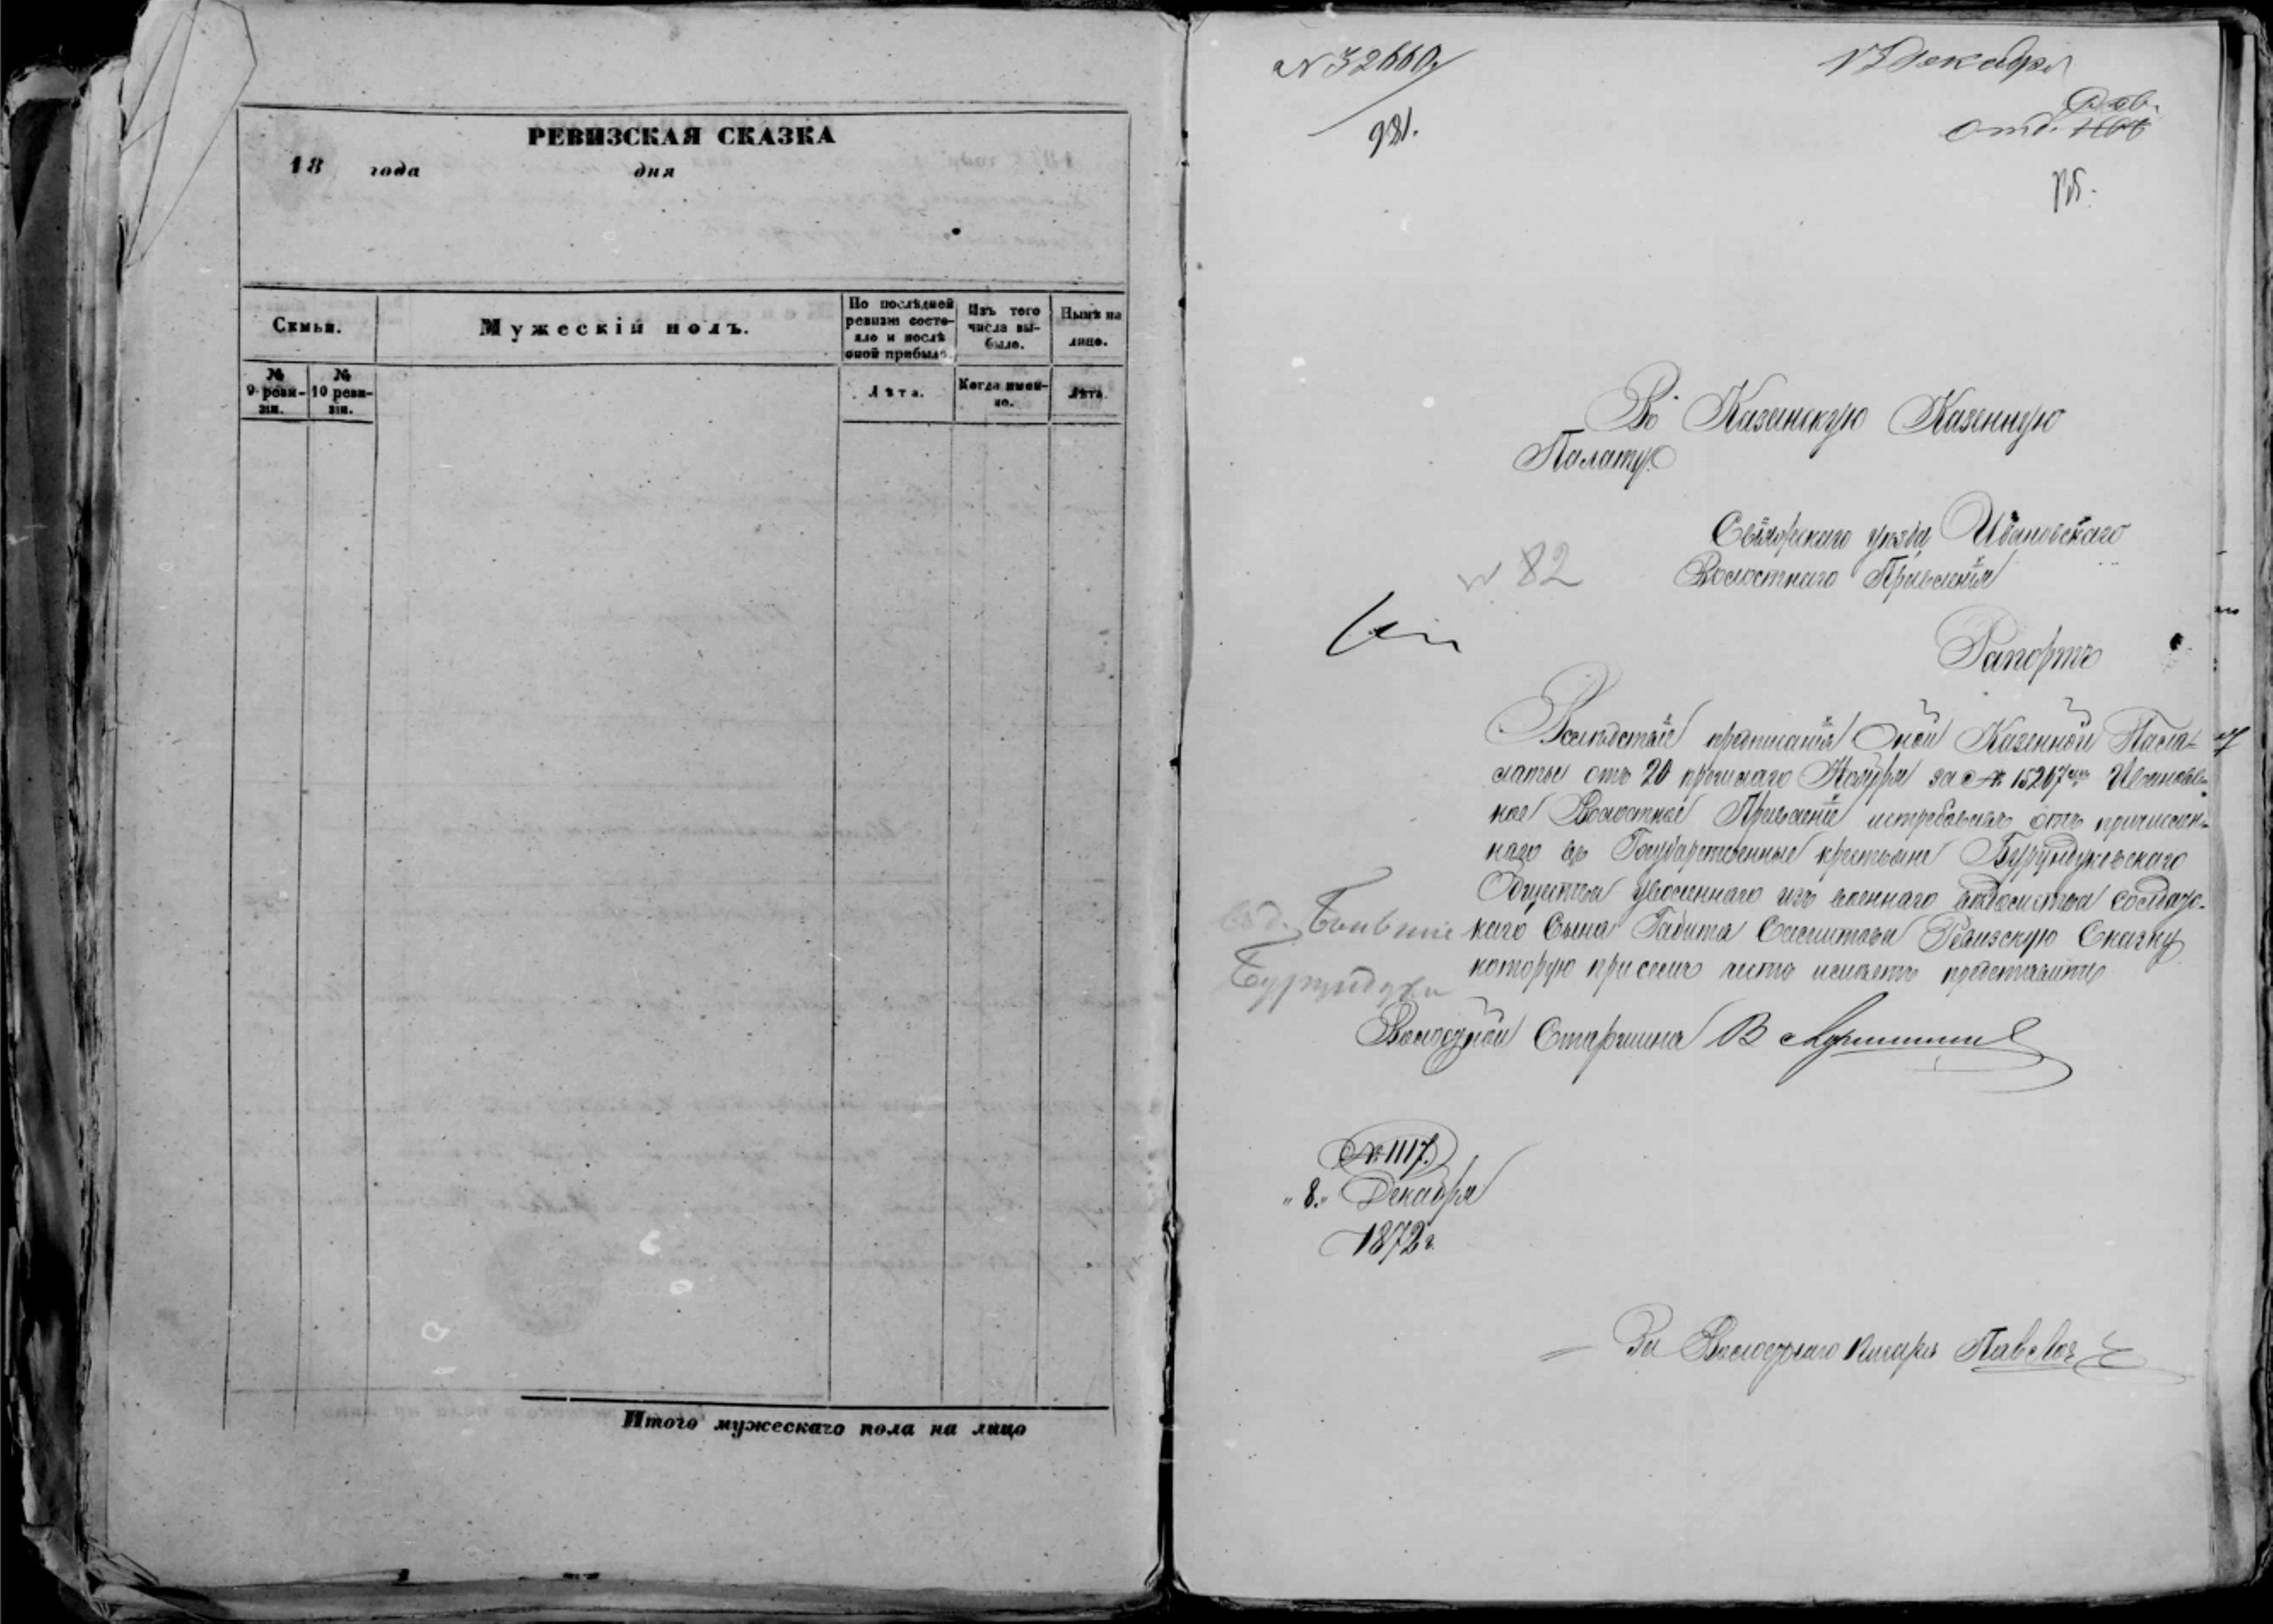 РЕВИЗСКАЯ СКАЗКА
18 года дня
Семьи.
Мужескій полъ.
По послѣдней ревизіи состояло и послѣ оной прибыло.
Изъ того числа выбыло.
Нынѣ на лицо.
№ 9 ревизіи.
№ 10 ревизіи.
Лѣта.
Когда именно.
Лѣта.
Итого мужескаго пола на лицо
№ 32660
981.
Декабря
Рев.
отд.
Въ Казанскую Казенную
Палату
Свіяжскаго уѣзда Ивановскаго
Волостнаго Правленія
№ 82
Рапортъ
Вслѣдствіе предписанія Оной Казенной Пала-
латы отъ 20 прошлаго Ноября за № 15267 Ивановс-
кое Волостное Правленіе истребовавъ отъ причислен-
наго въ Государственные крестьяне Бурундуковскаго
Общества уволеннаго изъ военнаго вѣдомства солдатс-
каго Сына Габита Сагитова Ревизскую Сказку
которую при семъ честь имѣетъ представить
Бурундуки
Волостной Старшина В
№ 1117.
"8" Декабря
1872 г.
За Волостнаго Писаря Павлов